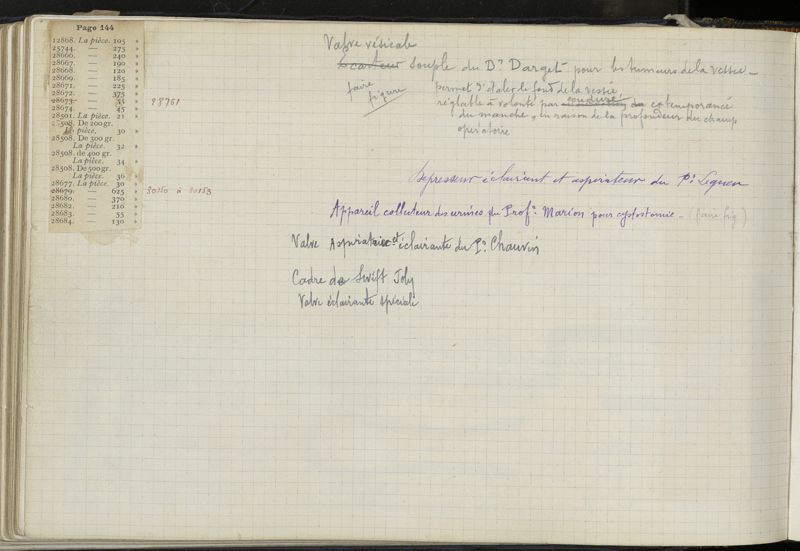 Page 144
12868. La pièce. 105 »
25744. — 275 »
28666. — 240 »
28667. — 190 »
28668. — 120 »
28669. — 185 »
28671. — 225 »
28672. — 375 »
28673. — 55 »
28674. — 45 »
28501. La pièce. 21 »
28508. De 200 gr.
La pièce. 30 »
28508. De 300 gr.
La pièce. 32 »
28508. de 400 gr.
La pièce. 34 »
28508. De 500 gr.
La pièce. 36 »
28677. La pièce. 30 »
28679. — 625 »
28680. — 370 »
28682. — 210 »
28683. — 55 »
28684. — 130 »
28761
30150 à 30153
Valve vésicale
Ecarteur souple du Dr Darget pour les tumeurs de la vessie —
faire
figure
permet d'étaler le fond de la vessie,
réglable à volonté par coudure extemporanée
du manche, en raison de la profondeur du champ
opératoire
Depresseur éclairant et aspirateur du Pr Legueu
Appareil collecteur des urines du Profr Marion pour cystostomie — (faire fig)
Valve Aspiratrice et éclairante du Pr Chauvin
Cadre de Swift Joly
Valve éclairante spéciale